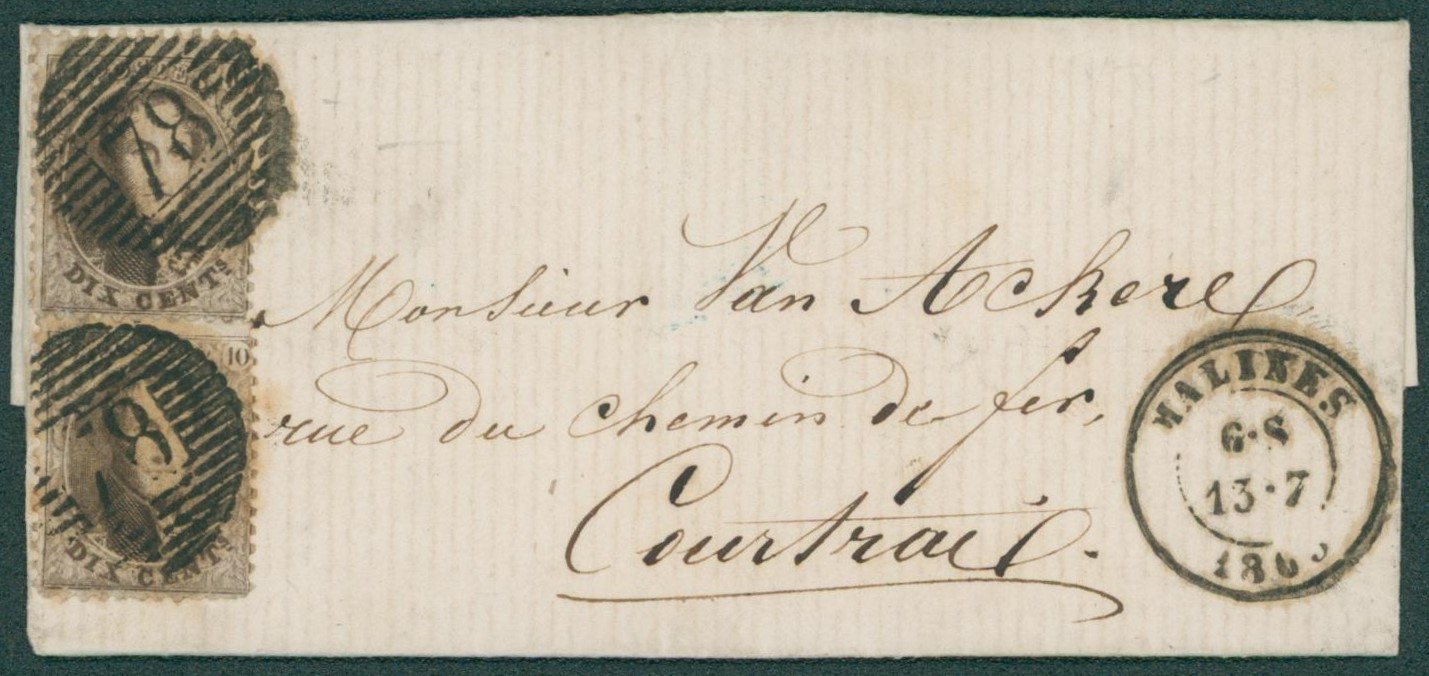 78
DIX CENTS
10
78
DIX CENTS
Monsieur Van Ackere
rue du chemin de fer,
Courtrai.
MALINES
6·S
13·7